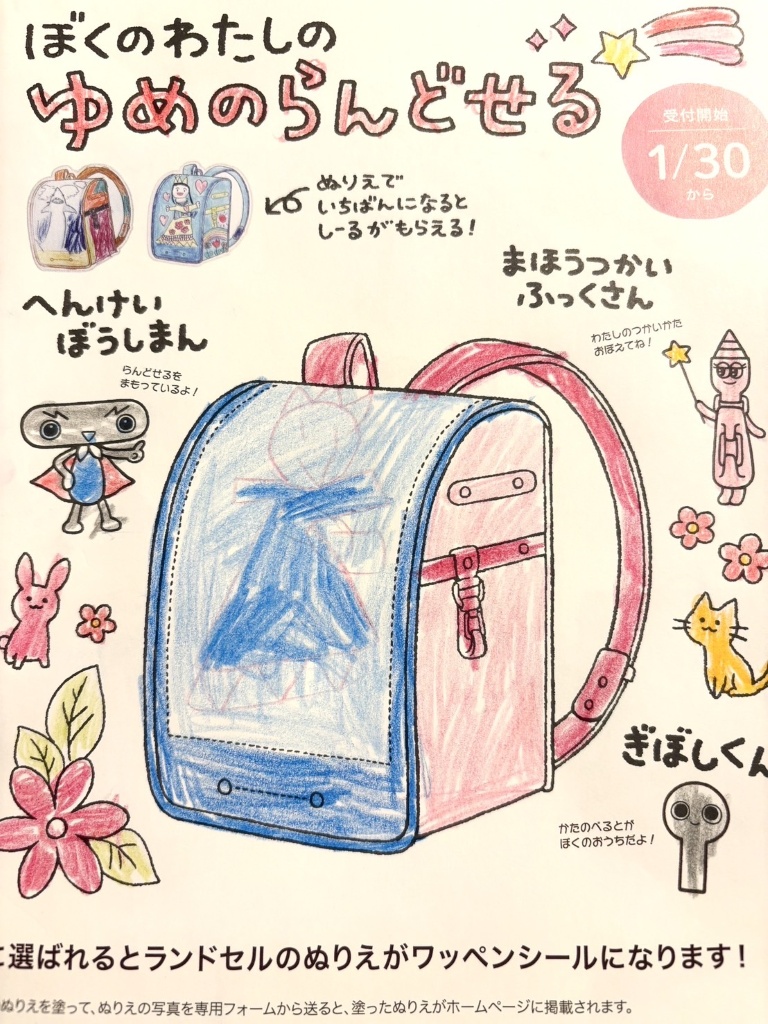 ぼくのわたしの
ゆめのらんどせる
受付開始
1/30
から
ぬりえで
いちばんになると
しーるがもらえる!
まほうつかい
ふっくさん
わたしのつかいかた
おぼえてね!
へんけい
ぼうしまん
らんどせるを
まもっているよ!
ぎぼしくん
かたのべるとが
ぼくのおうちだよ!
に選ばれるとランドセルのぬりえがワッペンシールになります!
ぬりえを塗って、ぬりえの写真を専用フォームから送ると、塗ったぬりえがホームページに掲載されます。